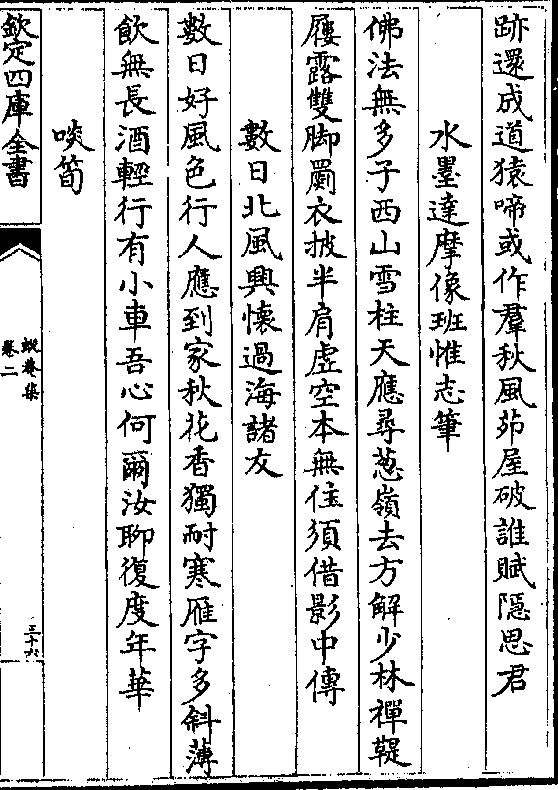 跡還成道猿啼或作羣秋風茆屋破誰賦隱思君
水墨達摩像班惟志筆
佛法無多子西山雪柱天應尋葱嶺去方解少林禪鞮
屨露雙脚罽衣披半肩虛空本無住須借影中傳
數日北風興懷過海諸友
數日好風色行人應到家秋花香獨耐寒雁字多斜薄
飲無長酒輕行有小車吾心何爾汝聊復度年華
啖筍
欽定四庫全書
蛻菴集
卷二
三十六